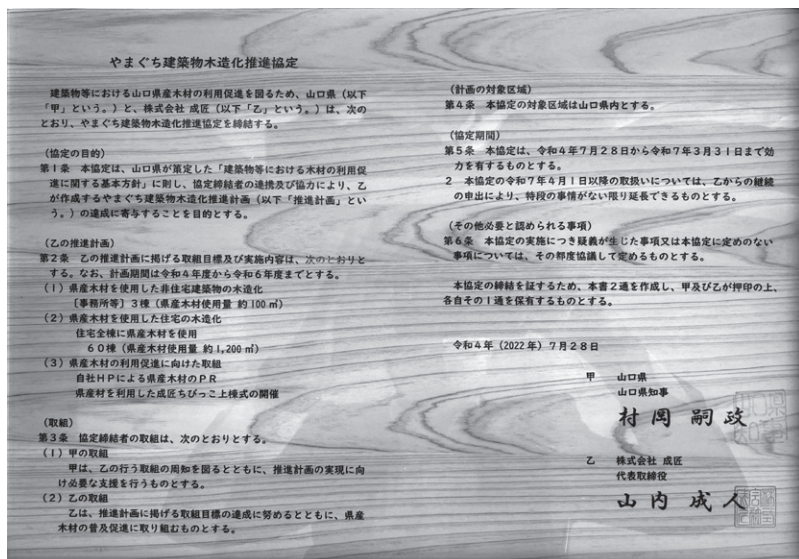 やまぐち建築物木造化推進協定
建築物等における山口県産木材の利用促進を図るため、山口県（以下
「甲」という。）と、株式会社 成匠（以下「乙」という。）は、次の
とおり、やまぐち建築物木造化推進協定を締結する。
（協定の目的）
第１条　本協定は、山口県が策定した「建築物等における木材の利用促
進に関する基本方針」に則し、協定締結者の連携及び協力により、乙
が作成するやまぐち建築物木造化推進計画（以下「推進計画」とい
う。）の達成に寄与することを目的とする。
（乙の推進計画）
第２条　乙の推進計画に掲げる取組目標及び実施内容は、次のとおりと
する。なお、計画期間は令和４年度から令和６年度までとする。
（１）県産木材を使用した非住宅建築物の木造化
〔事務所等〕３棟（県産木材使用量 約100㎥）
（２）県産木材を使用した住宅の木造化
住宅全棟に県産木材を使用
６０棟（県産木材使用量 約1,200㎥）
（３）県産木材の利用促進に向けた取組
自社ＨＰによる県産木材のＰＲ
県産材を利用した成匠ちびっこ上棟式の開催
（取組）
第３条　協定締結者の取組は、次のとおりとする。
（１）甲の取組
甲は、乙の行う取組の周知を図るとともに、推進計画の実現に向
け必要な支援を行うものとする。
（２）乙の取組
乙は、推進計画に掲げる取組目標の達成に努めるとともに、県産
木材の普及促進に取り組むものとする。
（計画の対象区域）
第４条　本協定の対象区域は山口県内とする。
（協定期間）
第５条　本協定は、令和４年７月２８日から令和７年３月３１日まで効
力を有するものとする。
２　本協定の令和７年４月１日以降の取扱いについては、乙からの継続
の申出により、特段の事情がない限り延長できるものとする。
（その他必要と認められる事項）
第６条　本協定の実施につき疑義が生じた事項又は本協定に定めのない
事項については、その都度協議して定めるものとする。
本協定の締結を証するため、本書２通を作成し、甲及び乙が押印の上、
各自その１通を保有するものとする。
令和４年（2022年）７月２８日
甲　山口県
山口県知事
村岡嗣政
乙　株式会社 成匠
代表取締役
山内成人